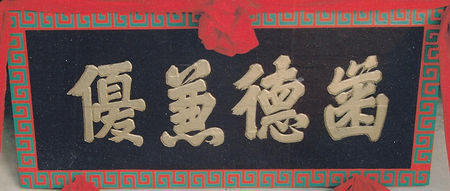 齒德兼優